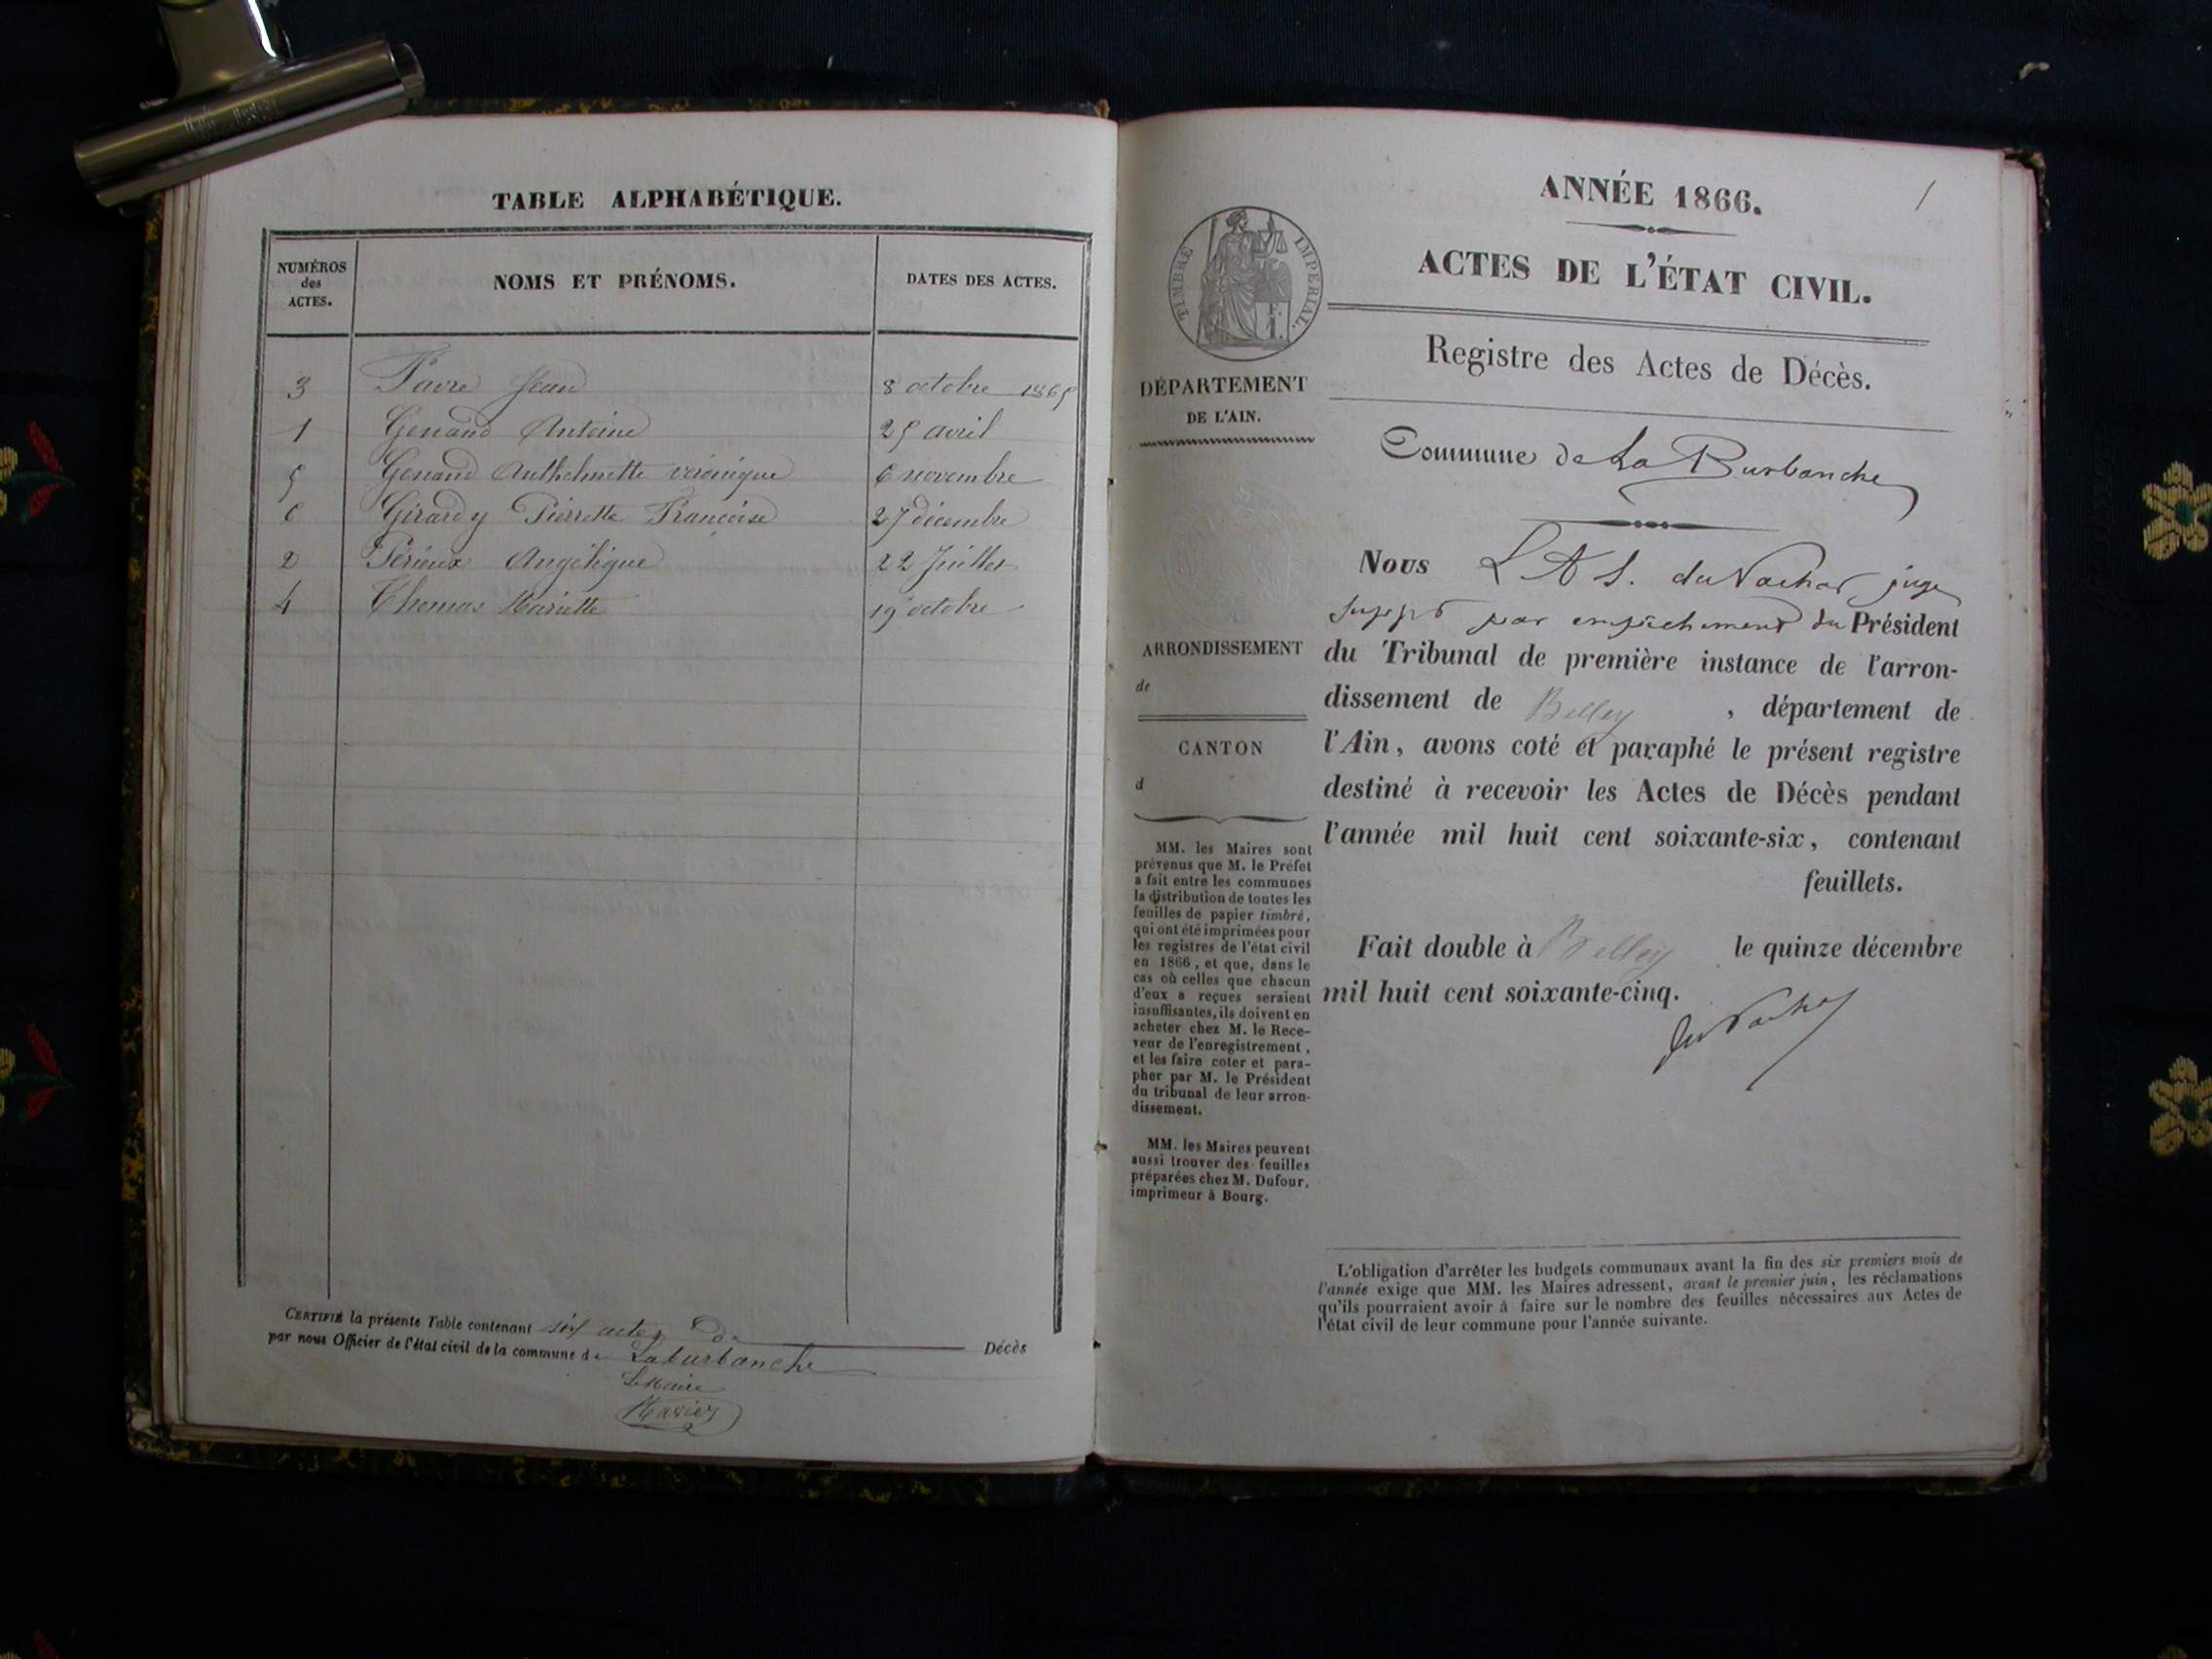 TABLE ALPHABÉTIQUE.
NUMÉROS des ACTES.
NOMS ET PRÉNOMS.
DATES DES ACTES.
3 Favre Jean 8 octobre 1865
1 Genand Antoine 25 avril
5 Genand Anthelmette véronique 6 novembre
6 Girardy Pierrette Françoise 27 décembre
2 Périeux Angélique 22 Juillet
4 Thomas Mariette 19 octobre
CERTIFIÉ la présente Table contenant six actes De Décès
par nous Officier de l'état civil de la commune de Laburbanche
Le Maire
1
ANNÉE 1866.
ACTES DE L'ÉTAT CIVIL.
Registre des Actes de Décès.
TIMBRE IMPÉRIAL.
DÉPARTEMENT
DE L'AIN.
ARRONDISSEMENT
de
CANTON
d
MM. les Maires sont
prévenus que M. le Préfet
a fait entre les communes
la distribution de toutes les
feuilles de papier timbré,
qui ont été imprimées pour
les registres de l'état civil
en 1866, et que, dans le
cas où celles que chacun
d'eux a reçues seraient
insuffisantes, ils doivent en
acheter chez M. le Rece-
veur de l'enregistrement,
et les faire coter et para-
pher par M. le Président
du tribunal de leur arron-
dissement.
MM. les Maires peuvent
aussi trouver des feuilles
préparées chez M. Dufour,
imprimeur à Bourg.
Commune de La Burbanche
Nous juge
par empêchement du Président
du Tribunal de première instance de l'arron-
dissement de Belley, département de
l'Ain, avons coté et paraphé le présent registre
destiné à recevoir les Actes de Décès pendant
l'année mil huit cent soixante-six, contenant
feuillets.
Fait double à Belley le quinze décembre
mil huit cent soixante-cinq.
L'obligation d'arrêter les budgets communaux avant la fin des six premiers mois de
l'année exige que MM. les Maires adressent, avant le premier juin, les réclamations
qu'ils pourraient avoir à faire sur le nombre des feuilles nécessaires aux Actes de
l'état civil de leur commune pour l'année suivante.